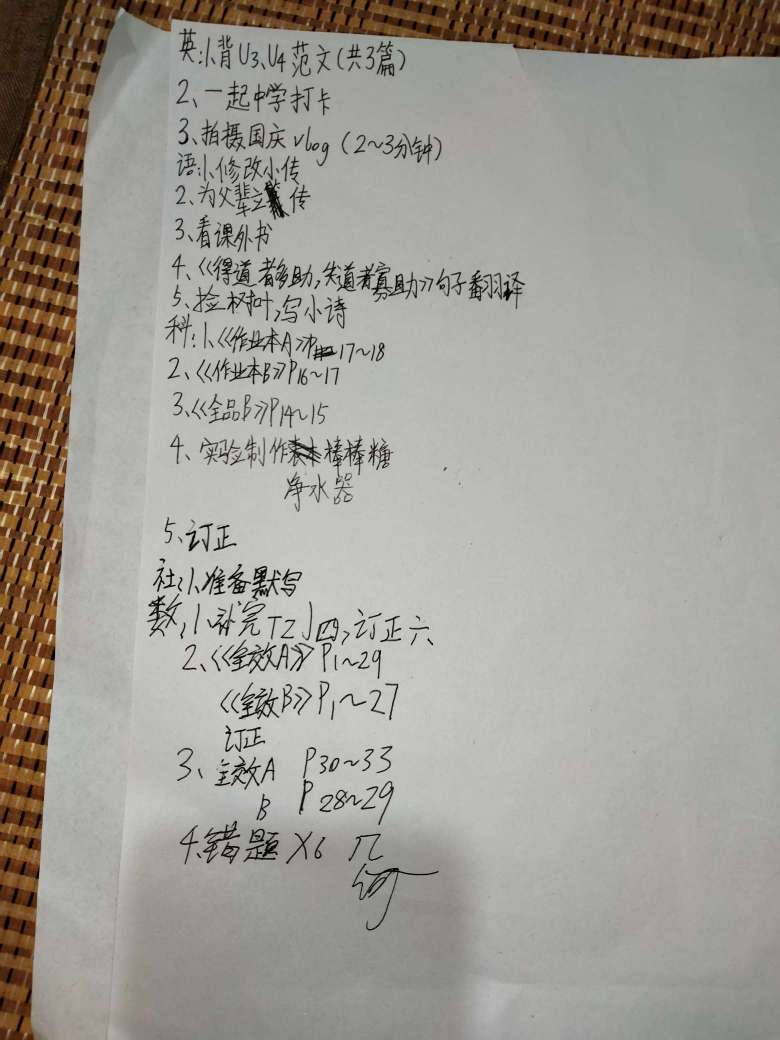 英:1、背U3、U4范文(共3篇)
2、一起中学打卡
3、拍摄国庆vlog(2~3分钟)
语:1、修改小传
2、为父辈立传
3、看课外书
4、《得道者多助,失道者寡助》句子翻译
5、捡树叶,写小诗
科:1、《作业本A》P17~18
2、《作业本B》P16~17
3、《全品B》P14~15
4、实验制作棒棒糖
净水器
5、订正
社:1、准备默写
数:1、补完T2J四,订正六、
2、《全效A》P1~29
《全效B》P1~27
订正
3、全效A P30~33
B P28~29
4、错题×6 几
何